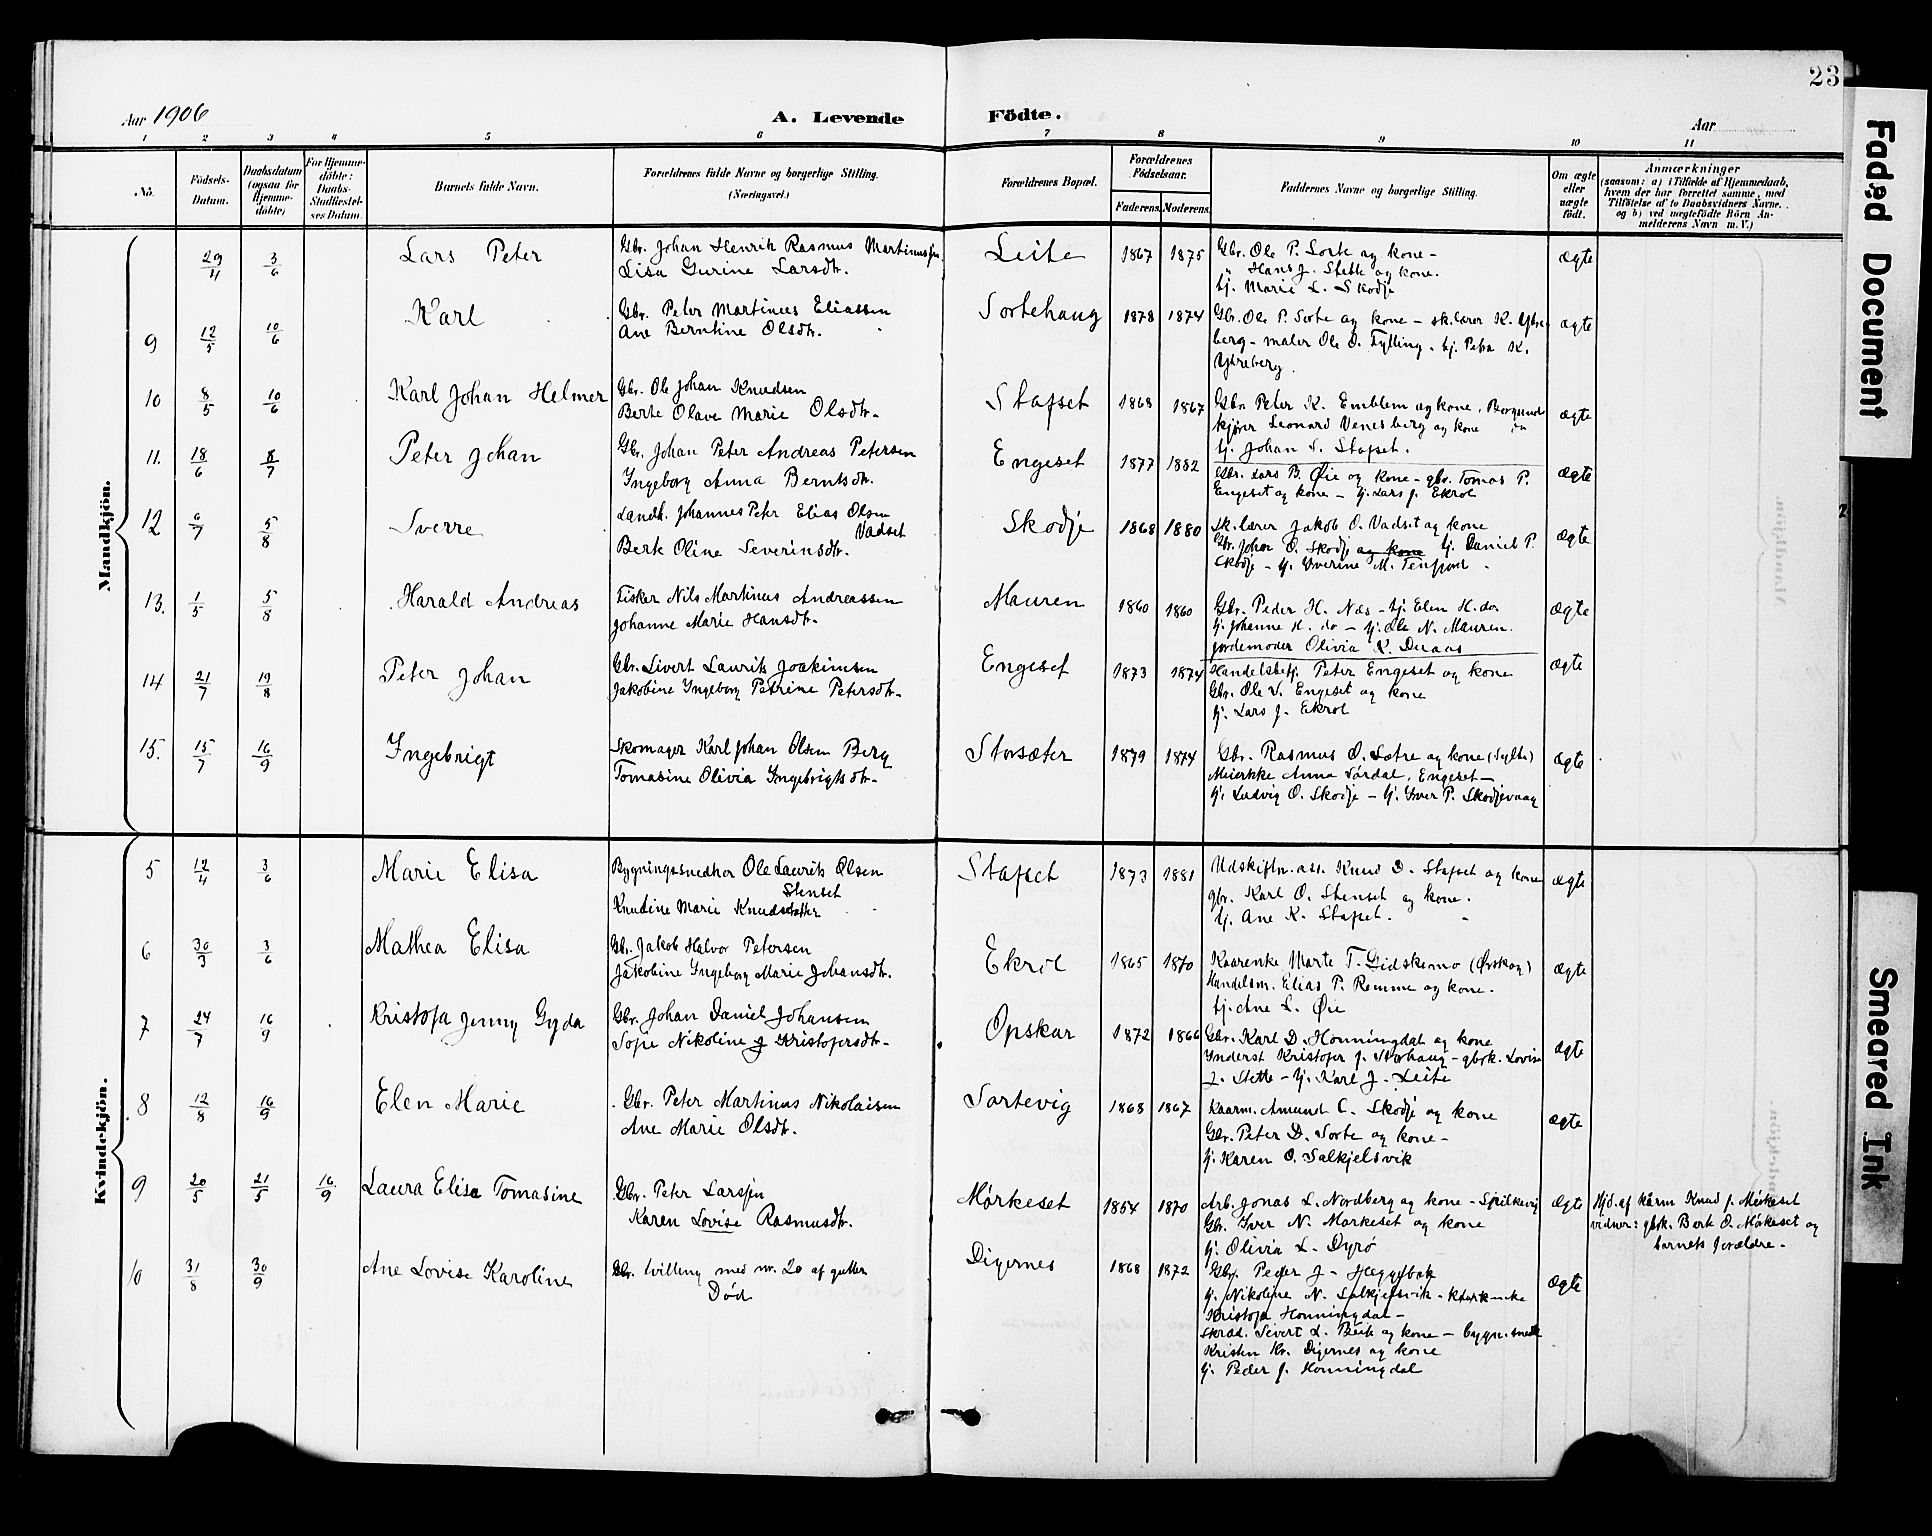 23
Aar 1906
A. Levende
Födte.
Aar
1 2 3 4 5 6 7 8 9 10 11
No.
Födsels-
Datum.
Daabsdatum
(ogsaa for
Hjemme-
döbte)
For Hjemme-
döbte:
Daabs-
Stadfæstel-
ses Datum.
Barnets fulde Navn.
Forældrenes fulde Navne og borgerlige Stilling.
(Næringsvei.)
Forældrenes Bopæl.
Forældrenes
Födselsaar.
Faderens. Moderens.
Faddernes Navne og borgerlige Stilling.
Om ægte
eller
uægte
födt.
Anmærkninger
(saasom: a) i Tilfælde af Hjemmedaab,
hvem der har forrettet samme, med
Tilföielse af to Daabsvidners Navne.
og b) ved uægtefödte Börn An-
melderens Navn m. V.)
Mandkjön.
29/4 3/6 Lars Peter
Gbr. Johan Henrik Rasmus Martinussen
Lisa Gurine Larsdtr.
Leite 1867 1875
Gbr. Ole P. Sorte og kone -
" Hans J. Stette og kone.
tj. Marie L. Skodje
ægte
9 12/5 10/6 Karl
Gbr. Peter Martinus Eliassen
Ane Berntine Olsdtr.
Sortehaug 1878 1874
Gbr. Ole P. Sorte og kone - sk.lærer K. Ytre-
berg - maler Ole O. Fylling - tj. Petra K.
Ytreberg.
ægte
10 8/5 10/6 Karl Johan Helmer
Gbr. Ole Johan Knudsen
Berte Olave Marie Olsdtr.
Stafset 1868 1867
Gbr. Peter K. Emblem og kone, Borgund
kjører Leonard Venesberg og kone
tj. Johan S. Stafset.
ægte
11. 18/6 8/7 Peter Johan
Gbr. Johan Peter Andreas Petersen
Ingeborg Anna Berntsdtr.
Engeset 1877 1882
Gbr. Lars B. Øie og kone - gbr. Tomas P.
Engeset og kone - tj. Lars J. Ekrol
ægte
12 6/7 5/8 Sverre
Landh. Johannes Peter Elias Olsen
Vadset
Berte Oline Severinsdtr.
Skodje 1868 1880
Sk.lærer Jakob O. Vadset og kone
Gbr. Johan O. Skodje og kone tj. Daniel P.
Skodje - tj. Iverine M. Tenfjord -
ægte
13. 1/5 5/8 Harald Andreas
Fisker Nils Martinus Andreassen
Johanne Marie Hansdtr.
Mauren 1860 1860
Gbr. Peder H. Næs - tj. Elen H. do
tj. Johanne H. do - tj. Ole N. Mauren.
Jordemoder Olivia K. Duaas
ægte
14 21/7 19/8 Peter Johan
Gbr. Sivert Laurits Joakimsen
Jakobine Ingeborg Petrine Petersdtr.
Engeset 1873 1874
Handelsbetj. Peter Engeset og kone
Gbr. Ole V. Engeset og kone
tj. Lars J. Ekrol
ægte
15. 15/7 16/9 Ingebrigt
Skomager Karl Johan Olsen Berg
Tomasine Olivia Ingebrigtsdtr.
Storsæter 1879 1874
Gbr. Rasmus O. Sætre og kone (Sylte)
Meierske Anna Sørdal, Engeset -
tj. Ludvig O. Skodje - tj. Iver P. Skodjevaag
ægte
Kvindekjön.
5 12/4 3/6 Marie Elisa
Bygningssnedker Ole Laurits Olsen
Stenset
Knudine Marie Knudsdatter
Stafset 1873 1881
Udskiftn. ass. Knud D. Stafset og kone
gbr. Karl O. Stenset og kone.
tj. Ane K. Stafset.
ægte
6 30/3 3/6 Mathea Elisa
Gbr. Jakob Halvor Petersen
Jakobine Ingeborg Marie Johansdtr.
Ekrol 1865 1870
Kaarenke Marte T. Gidskemo (Ørskog)
Handelsm. Elias P. Remme og kone.
tj. Ane L. Øie
ægte
7 24/7 16/9 Kristofa Jenny Gyda
Gbr. Johan Daniel Johansen
Sofie Nikoline J Kristofersdtr.
Opskar 1872 1866
Gbr. Karl D. Honningdal og kone
Inderst Kristofer J. Storhaug - gbsk. Lovise
J. Stette - tj. Karl J. Leite
ægte
8 12/8 16/9 Elen Marie
Gbr. Peter Martinus Nikolaisen
Ane Marie Olsdtr.
Sortevig 1868 1867
Kaarm. Amund C. Skodje og kone
Gbr. Peter D. Sorte og kone -
tj. Karen O. Salkjelsvik
ægte
9 20/5 21/5 16/9 Laura Elise Tomasine
Gbr. Peter Larssen
Karen Lovise Rasmusdtr.
Mørkeset 1864 1870
Arb. Jonas L. Nordberg og kone - Spilkevig
Gbr. Iver N. Mørkeset og kone
tj. Olivia L. Dyrø
ægte
Hjd. af kårm Knud J. Mørkeset
vidner: gbk. Berte O. Mørkeset og
barnets forældre.
10 31/8 30/9 Ane Lovise Karoline
Gbr. tvilling med nr. 20 af gutter
Død
Digernes 1868 1872
Gbr. Peder J. Heggebak
tj. Nikoline N. Salkjelsvik -
Kristofa Honningdal -
Skræd. Sivert L. Leite og kone - bygn.snedk
Kristen Kr. Digernes og kone
tj. Peder J. Honningdal
ægte
Faded Document
Smeared Ink